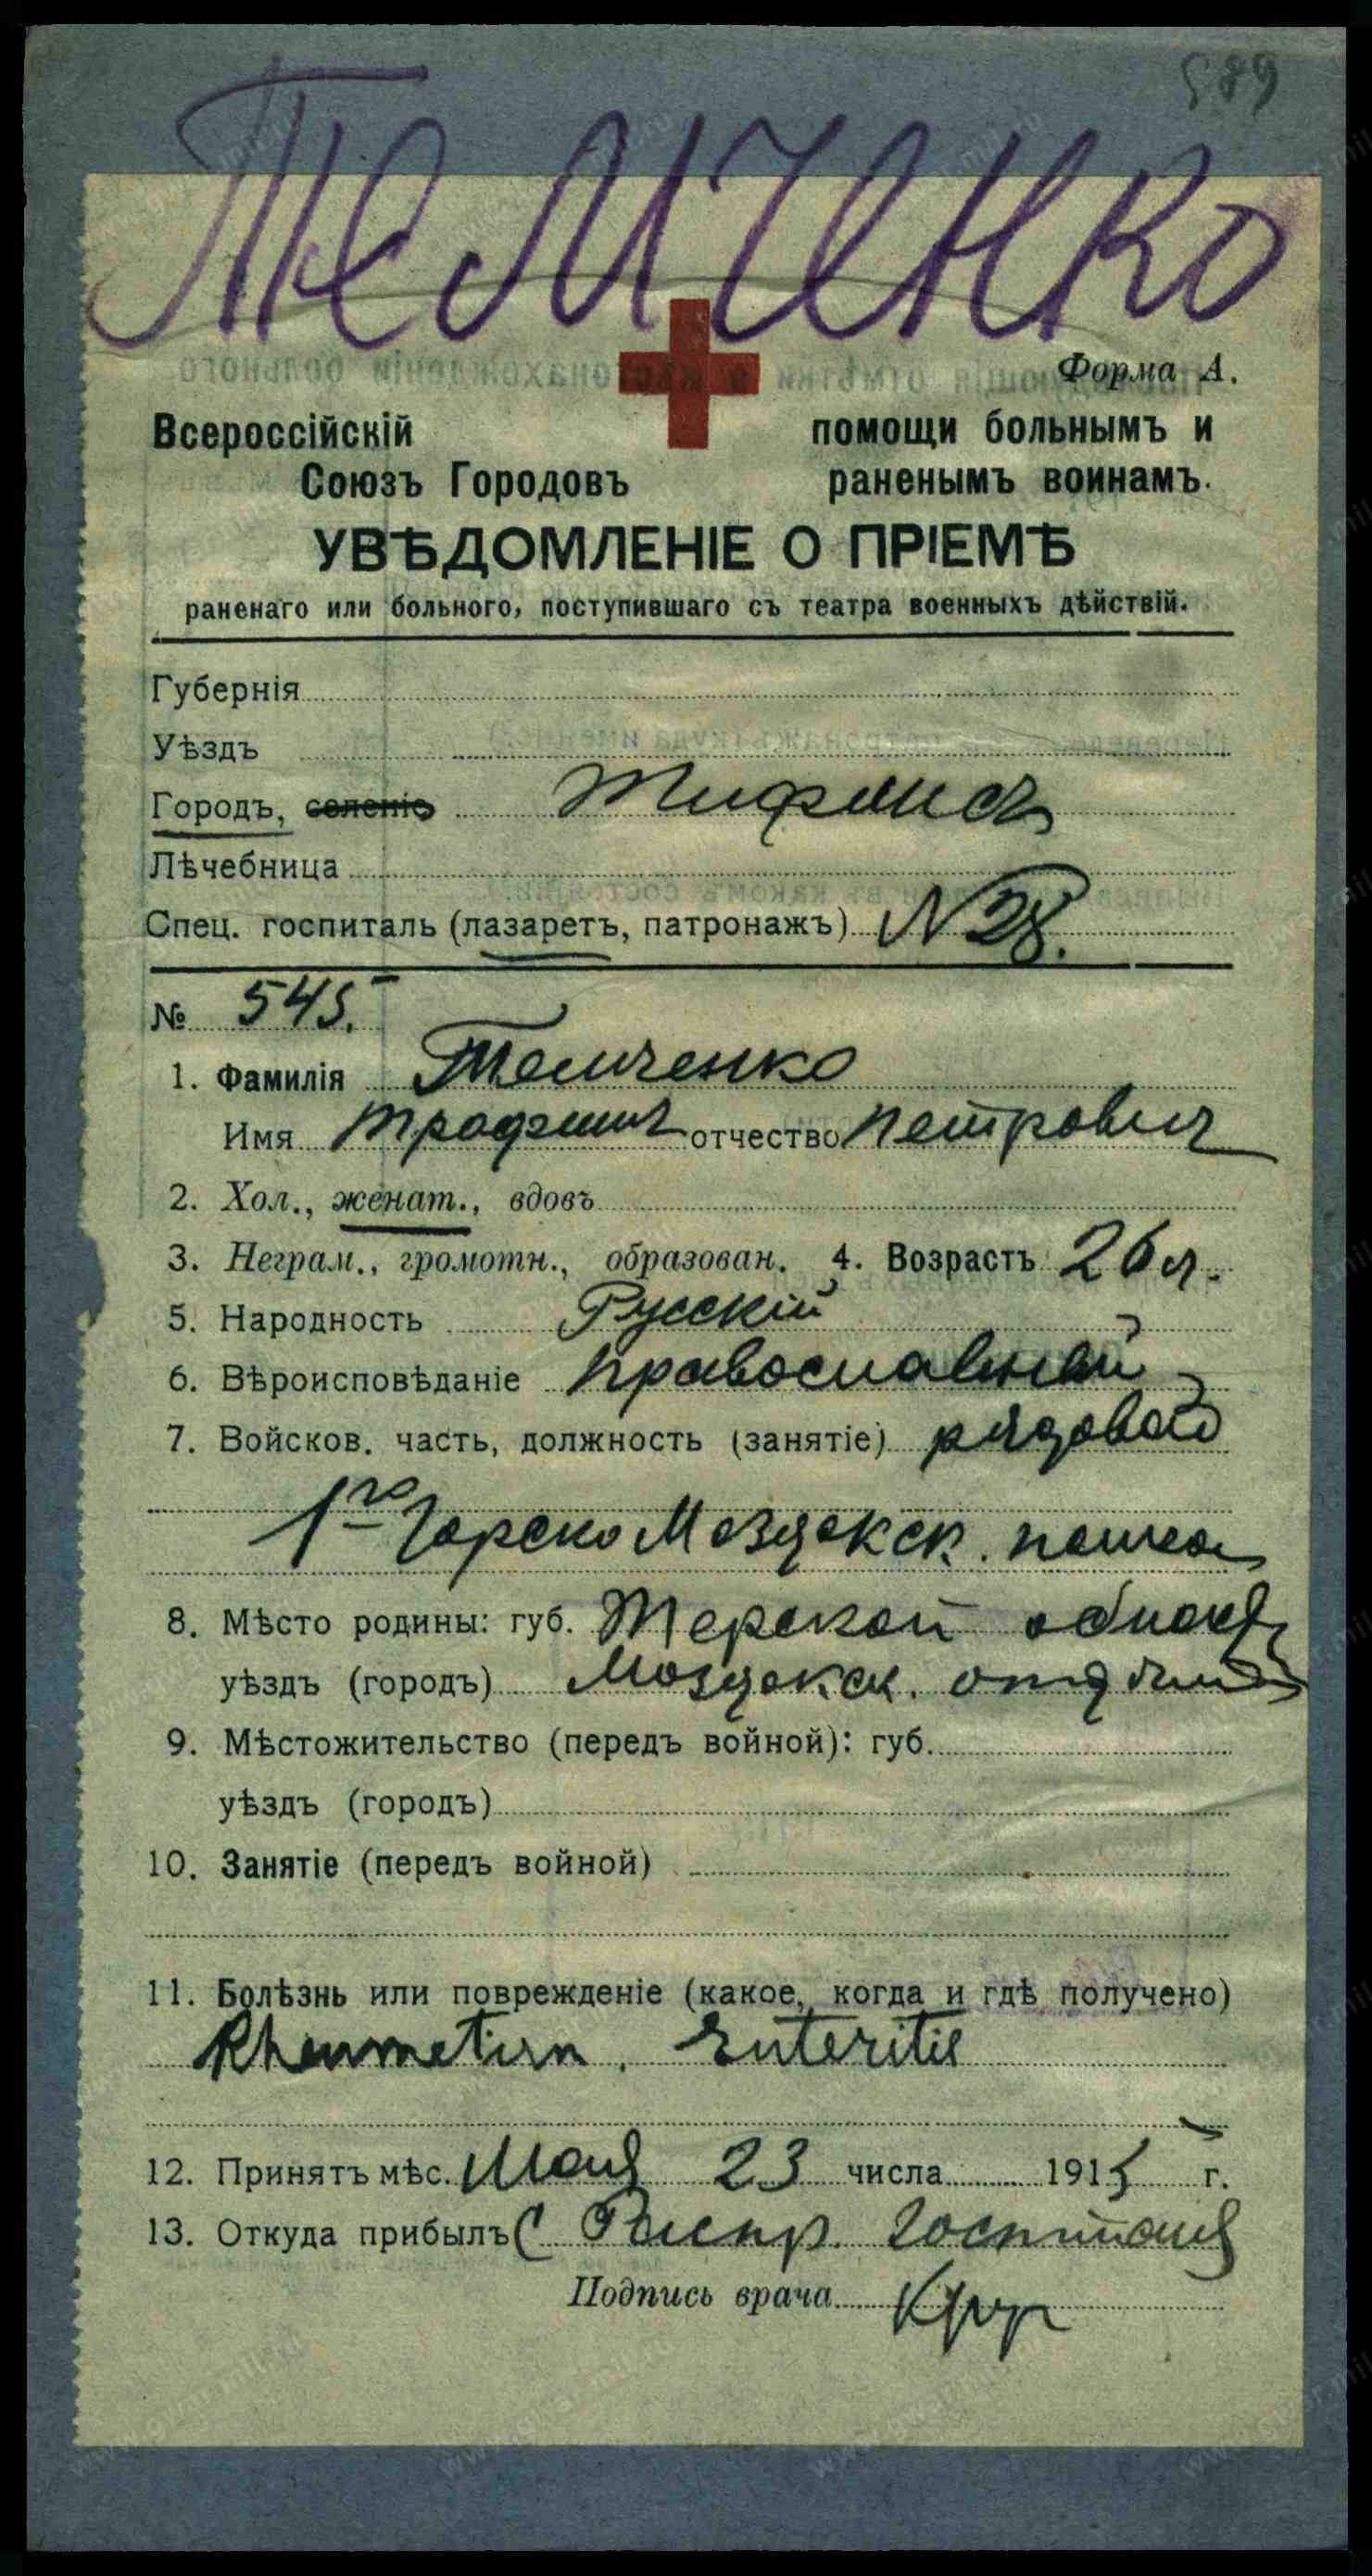 589
Темченко
Форма А.
Всероссійскій помощи больнымъ и
Союзъ Городовъ раненымъ воинамъ.
УВѢДОМЛЕНІЕ О ПРІЕМѢ
раненаго или больного, поступившаго съ театра военныхъ дѣйствій.
Губернія
Уѣздъ
Городъ, селеніе Тифлисъ
Лѣчебница
Спец. госпиталь (лазаретъ, патронажъ) N 28.
№ 545.
1. Фамилія Темченко
Имя Трофимъ отчество Петрович
2. Хол., женат., вдовъ
3. Неграм., громотн., образован. 4. Возрастъ 26 л.
5. Народность Русскій
6. Вѣроисповѣданіе православный
7. Войсков. часть, должность (занятіе) рядовой
1го Горско Моздокск. полка
8. Мѣсто родины: губ. Терской област
уѣздъ (городъ) Моздокск. отдѣла
9. Мѣстожительство (передъ войной): губ.
уѣздъ (городъ)
10. Занятіе (передъ войной)
11. Болѣзнь или поврежденіе (какое, когда и гдѣ получено)
Rheumatism. Enteritis
12. Принятъ мѣс. Мая 23 числа 1915 г.
13. Откуда прибылъ С Распр. госпиталя
Подпись врача